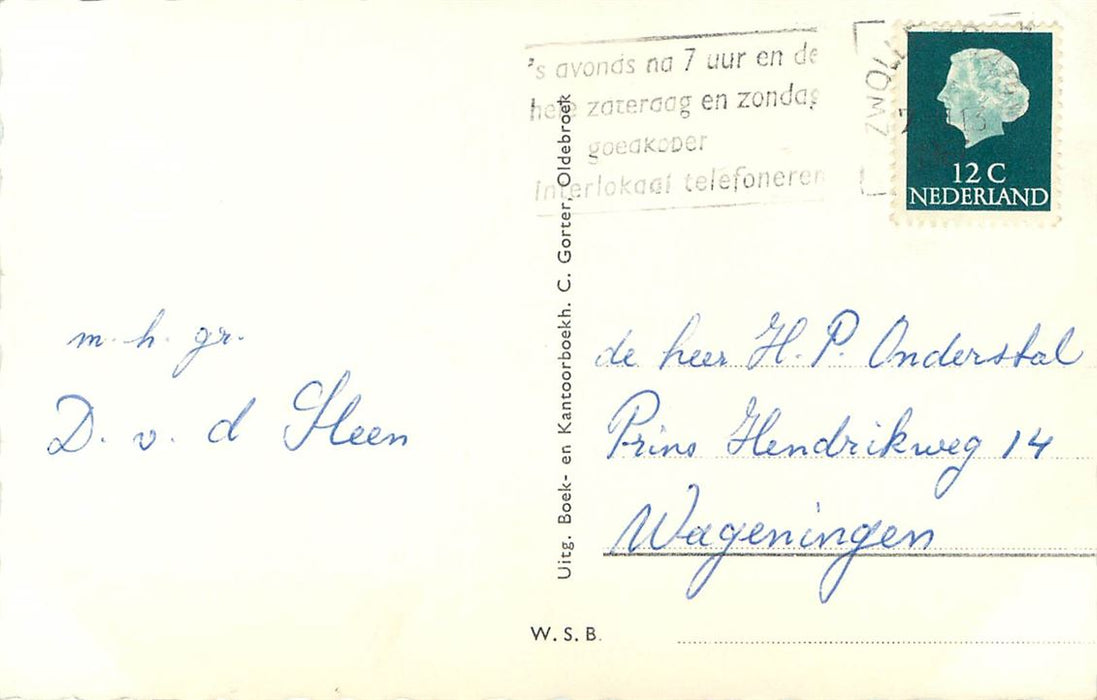 's avonds na 7 uur en de
hele zaterdag en zondag
goedkoper
interlokaal telefoneren
ZWOLLE
12 C
NEDERLAND
m. h. gr.
D. v. d Steen
Uitg. Boek- en Kantoorboekh. C. Gorter, Oldebroek
de heer H. P. Onderstal
Prins Hendrikweg 14
Wageningen
W. S. B.